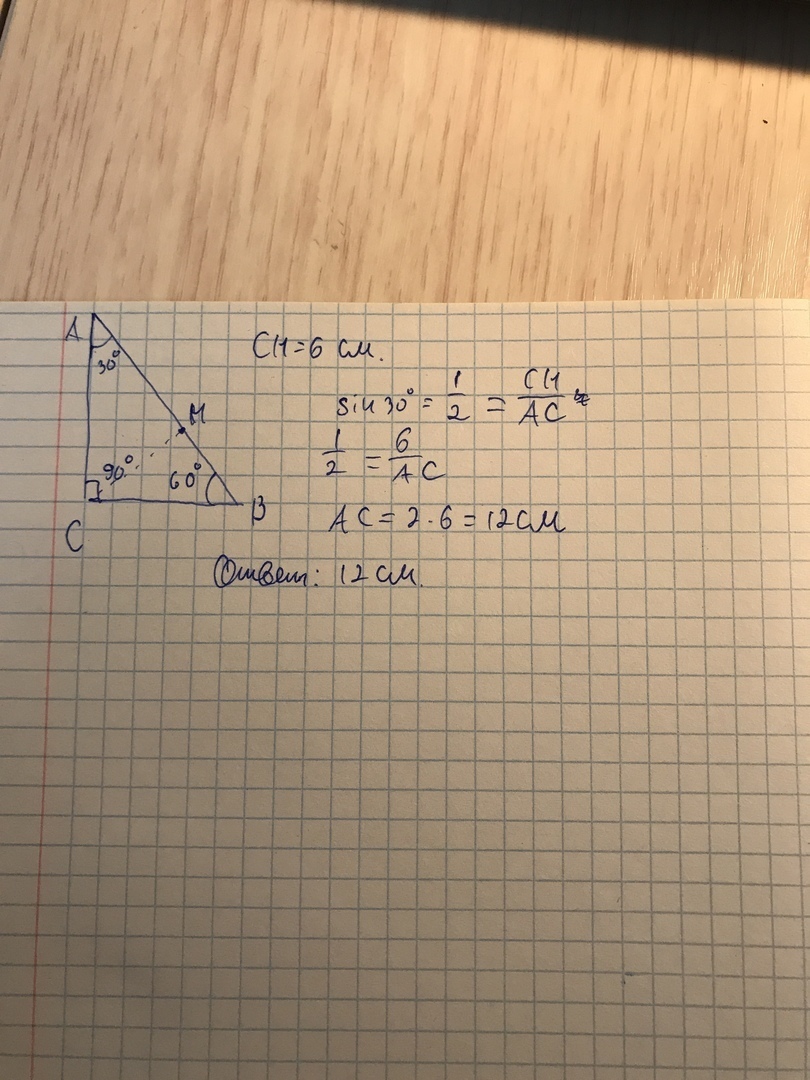 A
30°
H
90°
60°
B
C
CH=6 см.
sin 30° = 1/2 = CH/AC
1/2 = 6/AC
AC = 2·6 = 12 см
Ответ: 12 см.